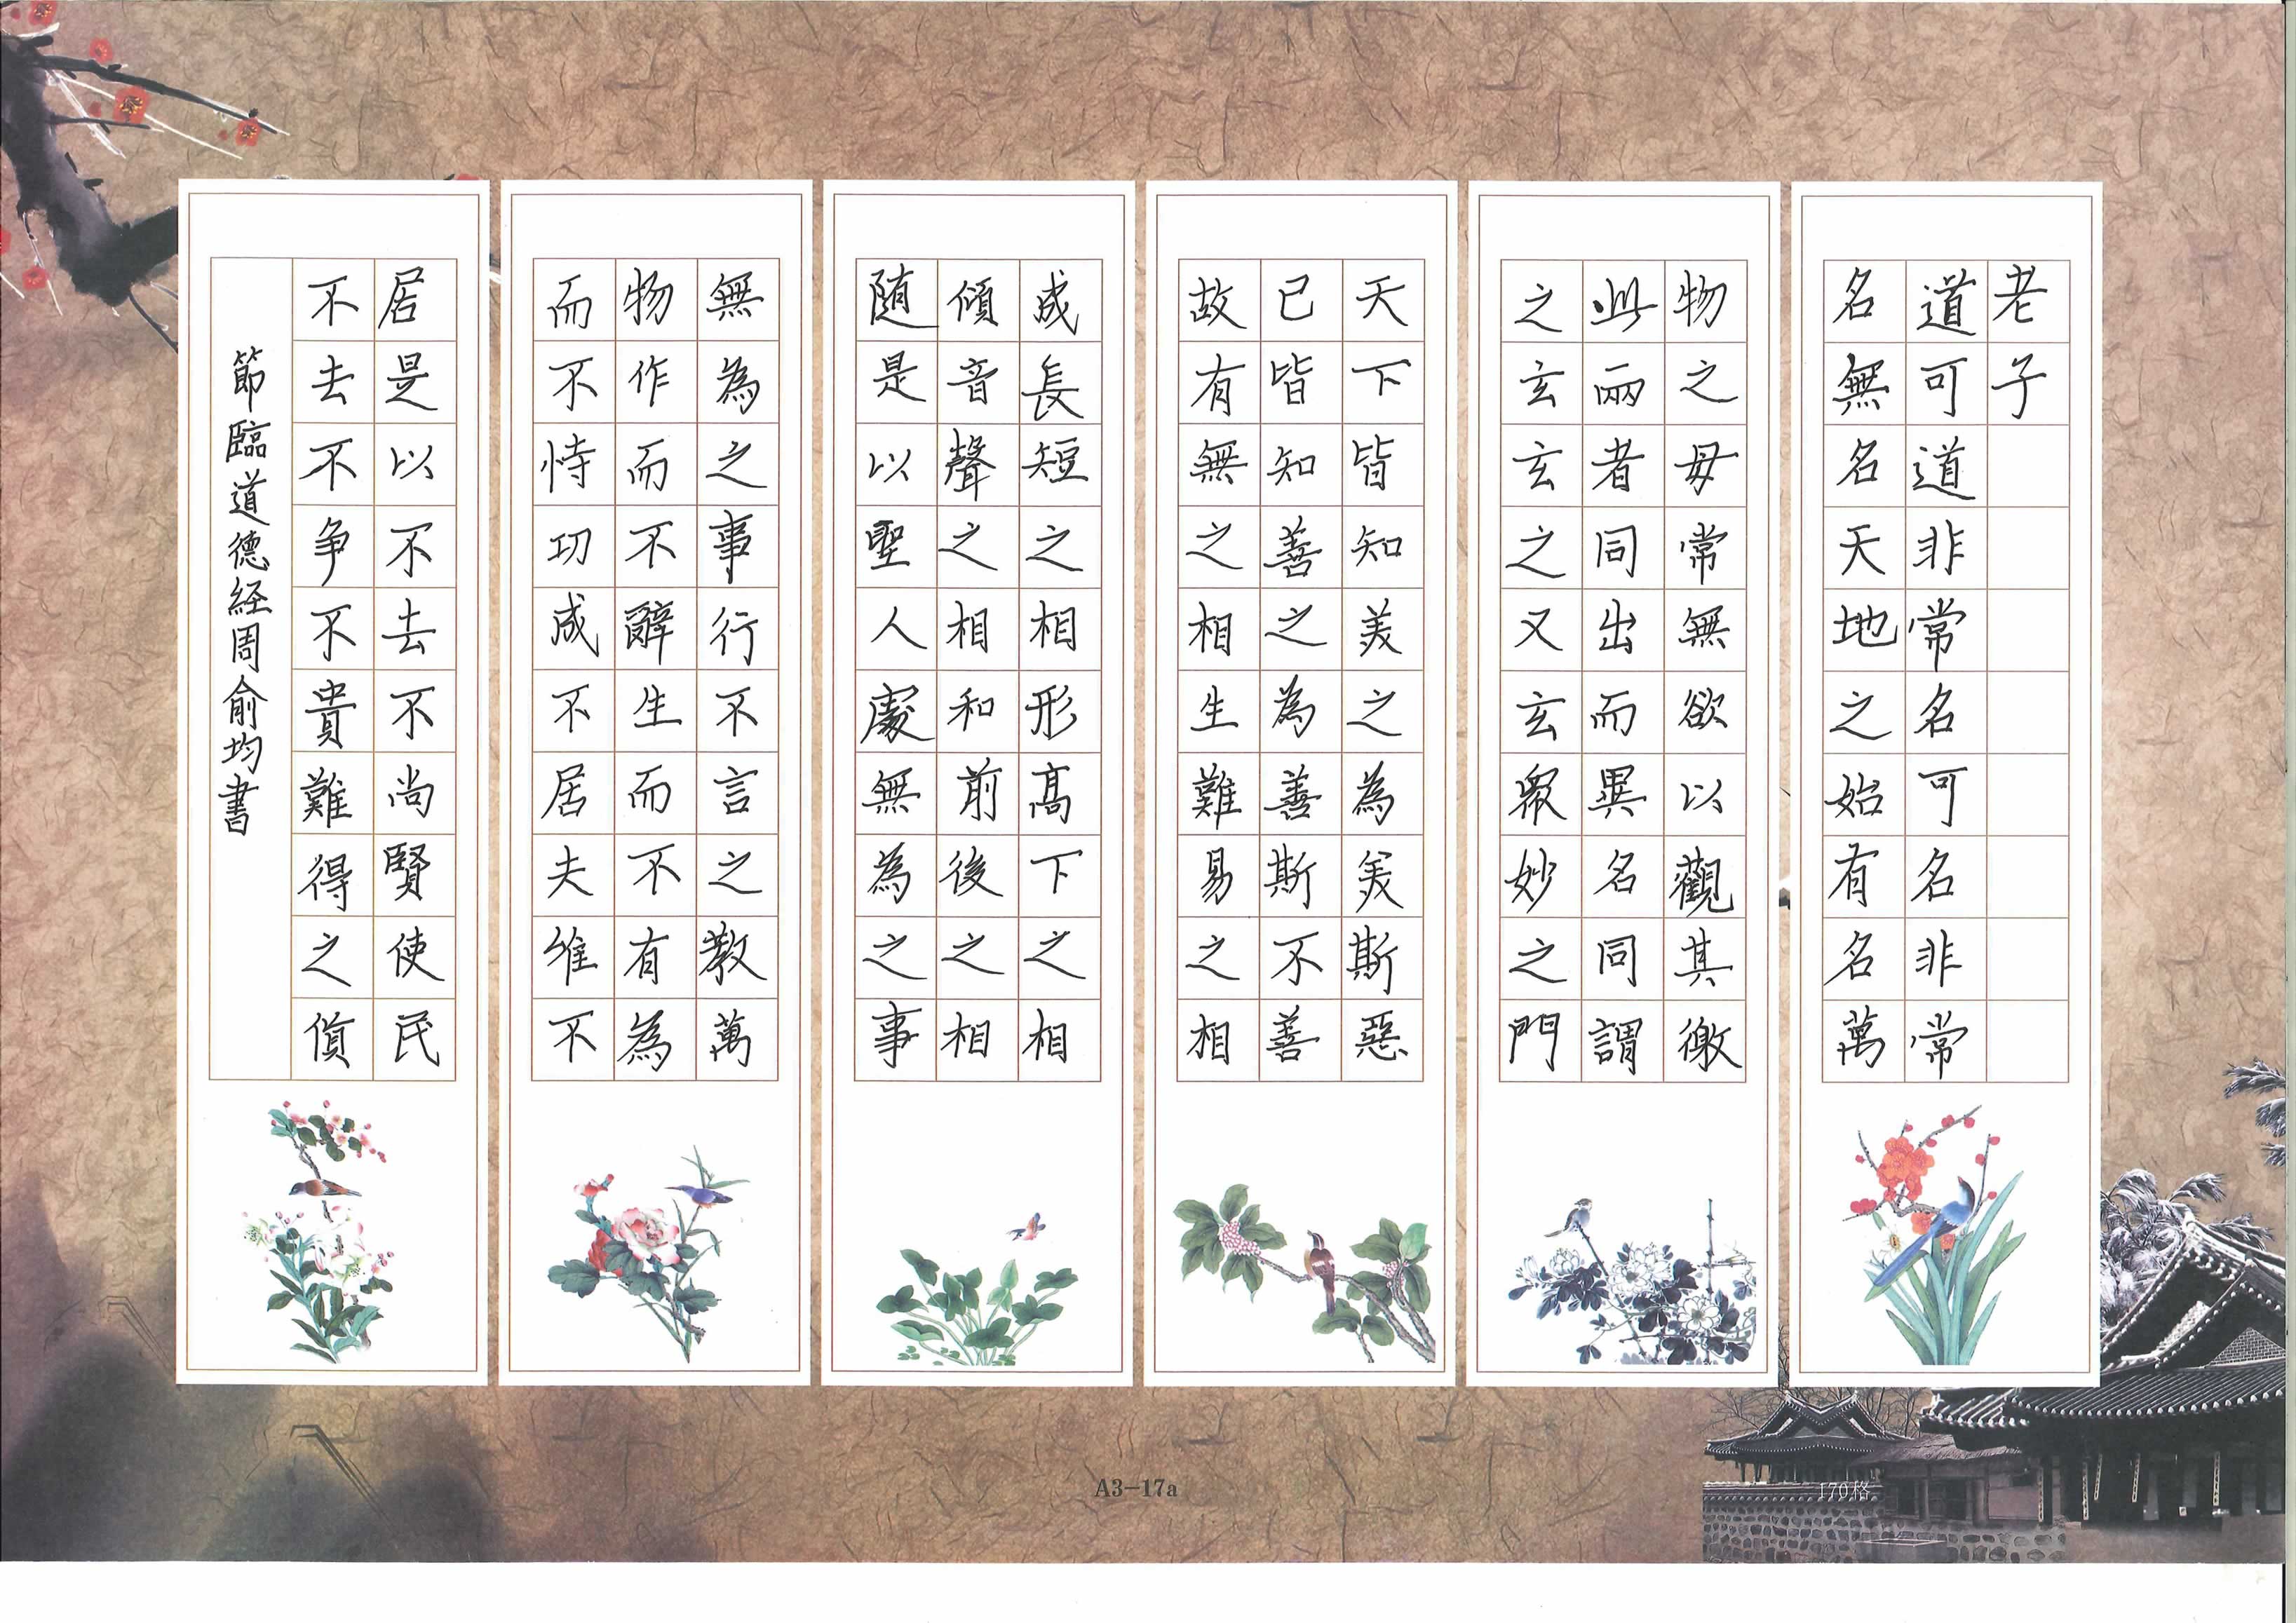 老子
道可道非常名可名非常
名無名天地之始有名萬
物之毋常無欲以觀其徼
此兩者同出而異名同謂
之玄玄之又玄眾妙之門
天下皆知美之為美斯惡
已皆知善之為善斯不善
故有無之相生難易之相
成長短之相形高下之相
傾音聲之相和前後之相
随是以聖人處無為之事
無為之事行不言之教萬
物作而不辭生而不有為
而不恃功成不居夫維不
居是以不去不尚賢使民
不去不争不貴難得之貨
節臨道德経周俞均書
A3-17a
170格